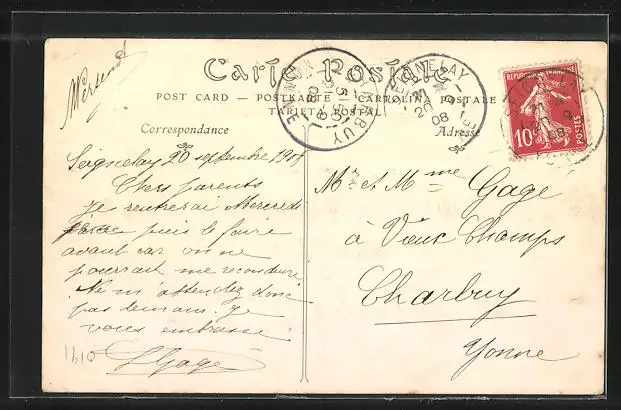 Carte Postale
POST CARD — POSTKARTE — CARTOLINA POSTALE
TARJETA POSTAL
Correspondance
Adresse
REPUBLIQUE FRANÇAISE
10c
POSTES
CHARBUY
YONNE
SEIGNELAY
20
08
Seignelay 20 septembre 1908
Chers parents
Je rentrerai Mercredi
puis le faire
avant car on ne
pourrait me reconduire
Ne m'attendez donc
pas demain. Je
vous embrasse
LGage
1410
Mr et Mme Gage
à Vieux Champs
Charbuy
Yonne